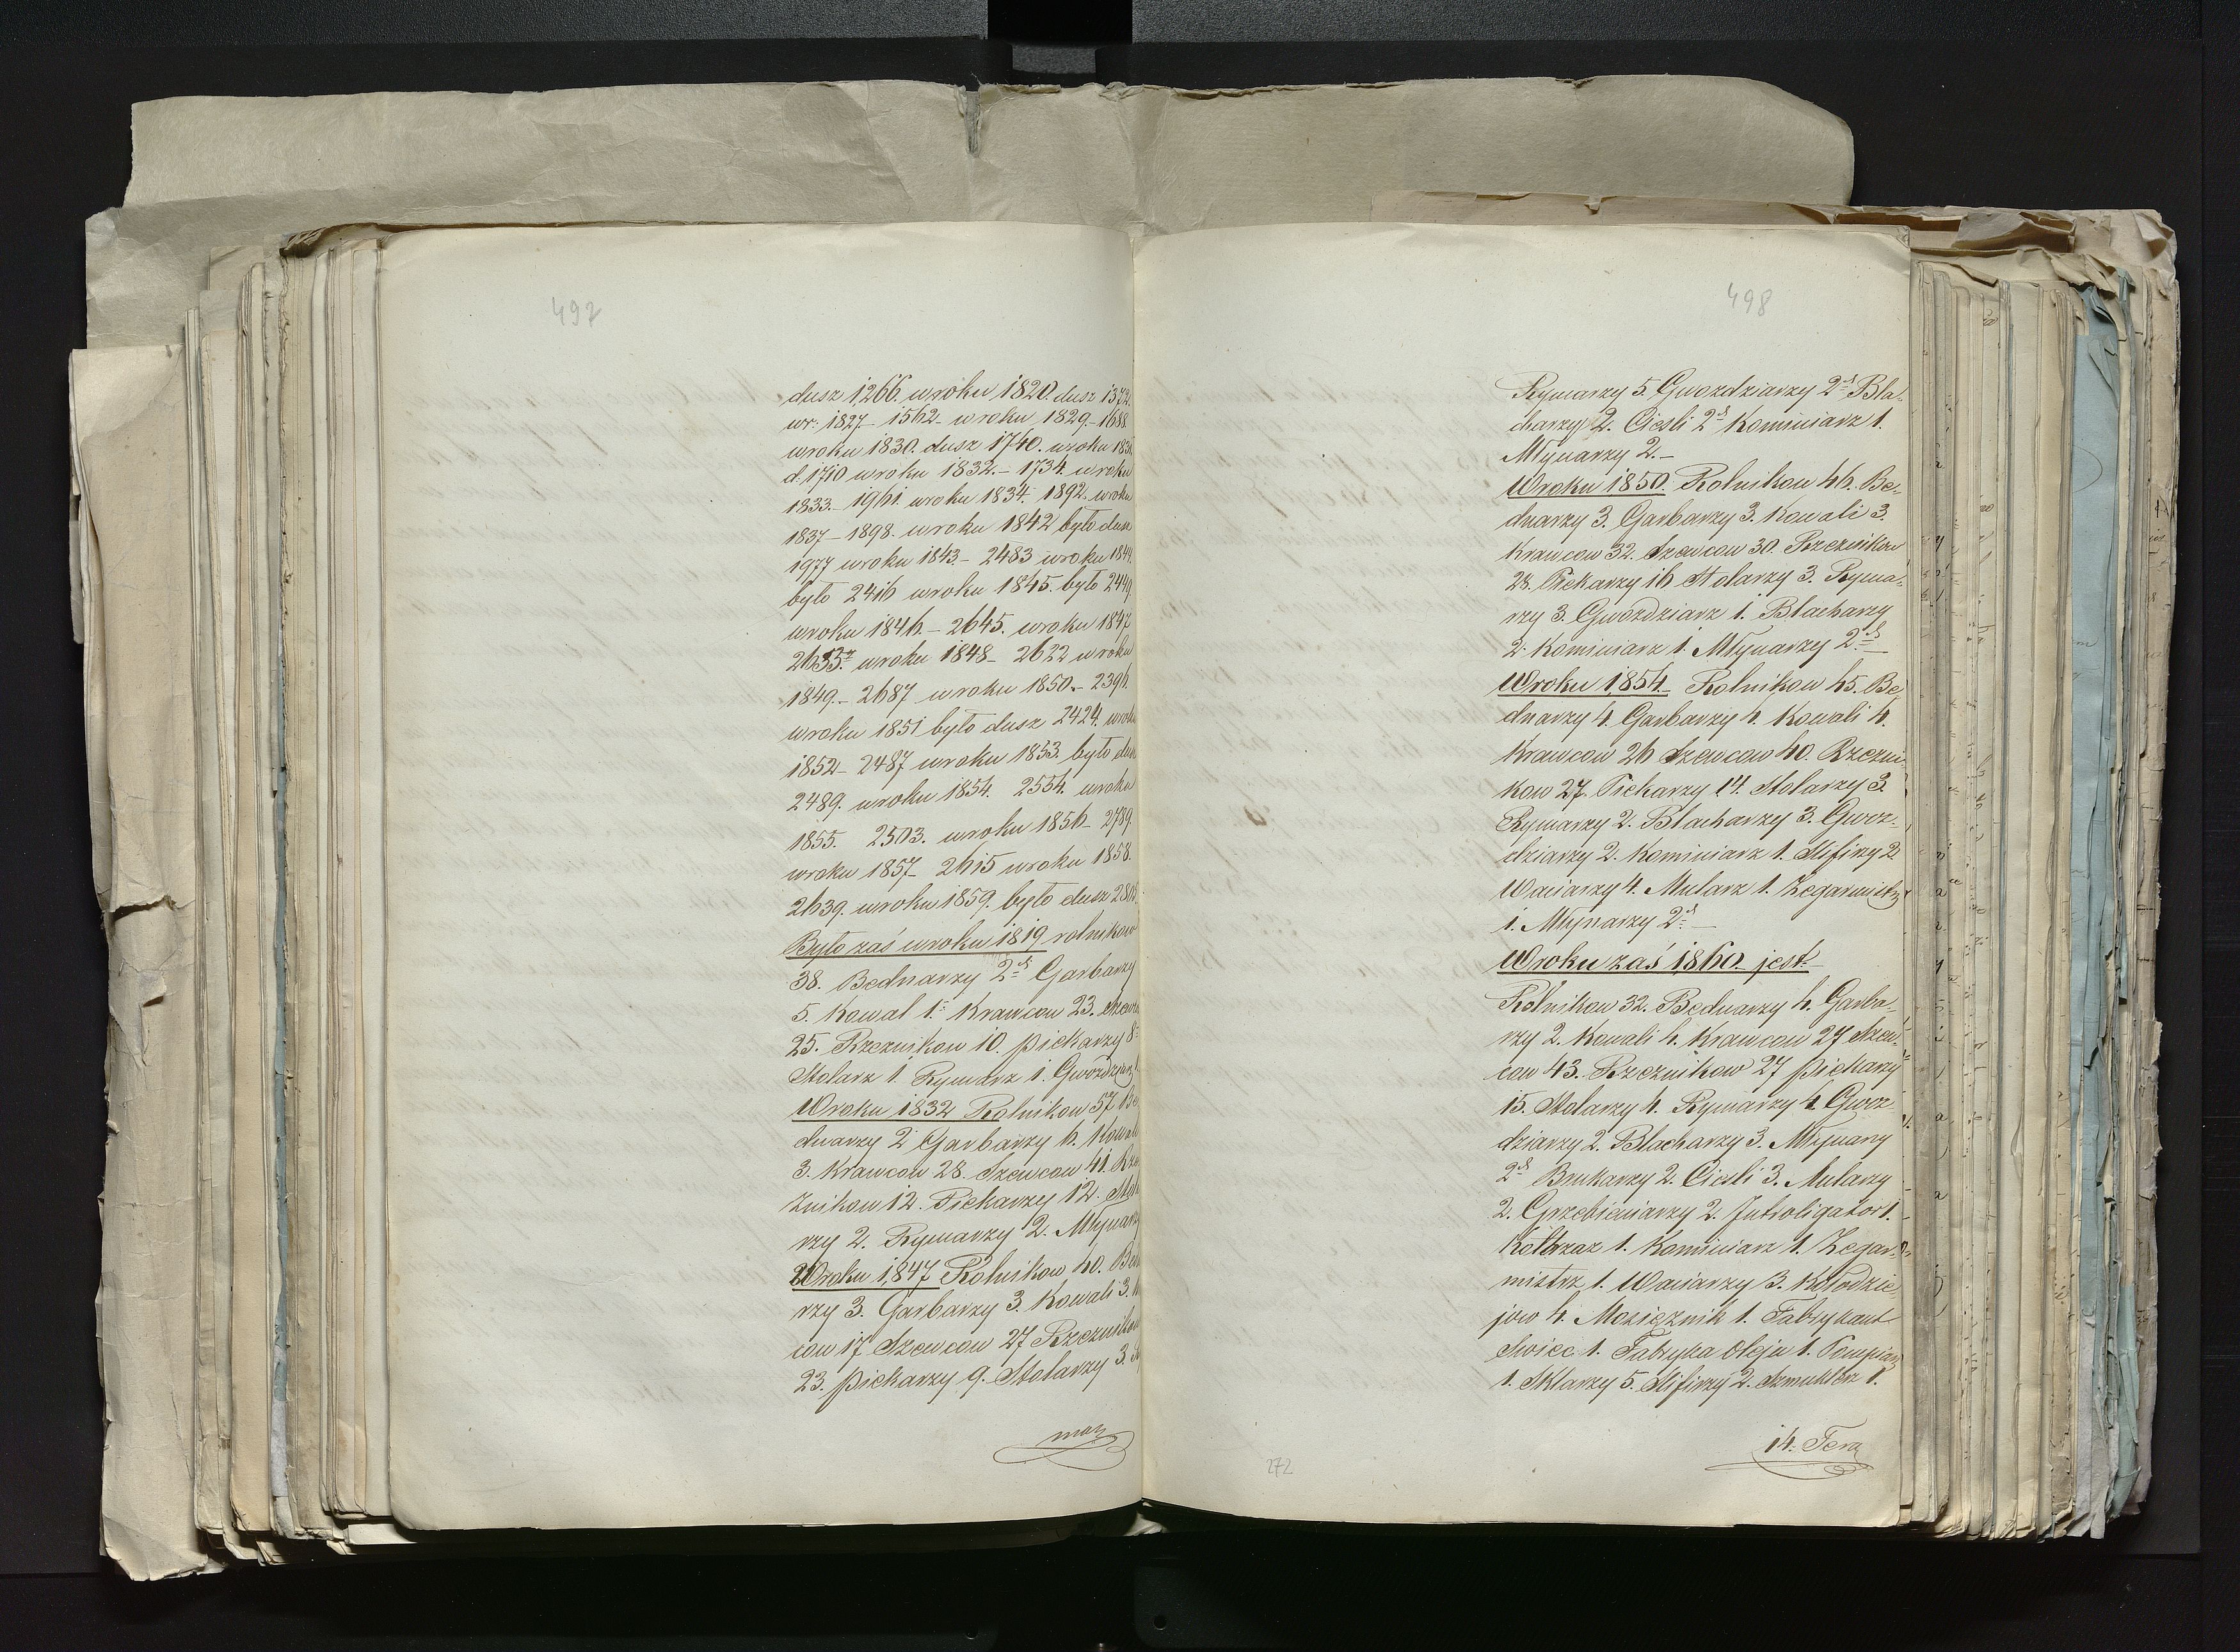 497
dusz 1266. wroku 1820. dusz 1372.
wr: 1827 - 1562 - wroku 1829. - 1688
wroku 1830. dusz 1740. wroku 183
d. 1710 wroku 1832. - 1734. wroku
1833. - 1961. wroku 1834. 1892. wroku
1837 - 1898. wroku 1842 było dusz
1977 wroku 1843. - 2483 wroku 1844.
było 2416 wroku 1845. było 2449
wroku 1846. - 2645. wroku 1847
wroku 1848 - 2622 wroku
1849. - 2687 wroku 1850. - 2396.
wroku 1851 było dusz 2424. wroku
1852 - 2487 wroku 1853. było dusz
2489. wroku 1854. 2554. wroku
1855. 2503. wroku 1856 - 2789.
wroku 1857 - 2615 wroku 1858.
2639. wroku 1859. było dusz
Było zaś wroku 1819 rolnikow
38. Bednarzy 2ch Garbarzy
5. Kowal 1. Krawcow 23. Szewcow
25. Rzeznikow 10. piekarzy 8
Stolarz 1. Rymarz 1. Gwoździarz 1.
Wroku 1832 Rolnikow 57 Be
dnarzy 2 Garbarzy 6. Kowali
3. Krawcow 28. Szewcow 41. Rze
znikow 12. Piekarzy 12. Stola
rzy 2. Rymarzy 2. Młynarz
Wroku 1847 Rolnikow 40. Bedn
rzy 3. Garbarzy 3. Kowali 3. K
cow 17 Szewcow 27 Rzeznikow
23. piekarzy 9. Stolarzy 3.
498
Rymarzy 5. Gwozdziarzy 2ch Bla-
charzy 2. Ciesli 2ch Kominiarz 1.
Młynarzy 2. -
Wroku 1850. Rolnikow 46. Be-
dnarzy 3. Garbarzy 3. Kowali 3.
Krawcow 32. Szewcow 30. Rzeznikow
28. Piekarzy 16 Stolarzy 3. Ryma-
rzy 3. Gwoździarz 1. Blacharzy
2. Kominiarz 1. Młynarzy 2ch -
Wroku 1854 - Rolnikow 45. Be
dnarzy 4. Garbarzy 4. Kowali 4.
Krawcow 26 Szewcow 40. Rzezni-
kow 27. Piekarzy 14. Stolarzy 3.
Rymarzy 2. Blacharzy 3. Gwoz-
dziarzy 2. Kominiarz 1. Slifirzy 2.
Waciarzy 4. Mularz 1. Zegarmistrz
1. Młynarzy 2ch -
Wroku zaś 1860 - jest. -
Rolnikow 32. Bednarzy 4. Garba-
rzy 2. Kowali 4. Krawcow 27 Szew-
cow 43. Rzeznikow 27 piekarzy
15. Stolarzy 4. Rymarzy 4. Gwoz-
dziarzy 2. Blacharzy 3. Młynarzy
2ch Brukarzy 2. Ciesli 3. Mularzy
2. Grzebieniarzy 2. Jntroligator 1.
Kominiarz 1. Zegar-
mistrz 1. Waciarzy 3. Kołodzie-
jow 4. Mosięznik 1. Fabrykant
Swiec 1. Fabryka Oleju 1.
1. Sklarzy 5. Slifirzy 2. Szmuklerz 1.
14. Tera
272